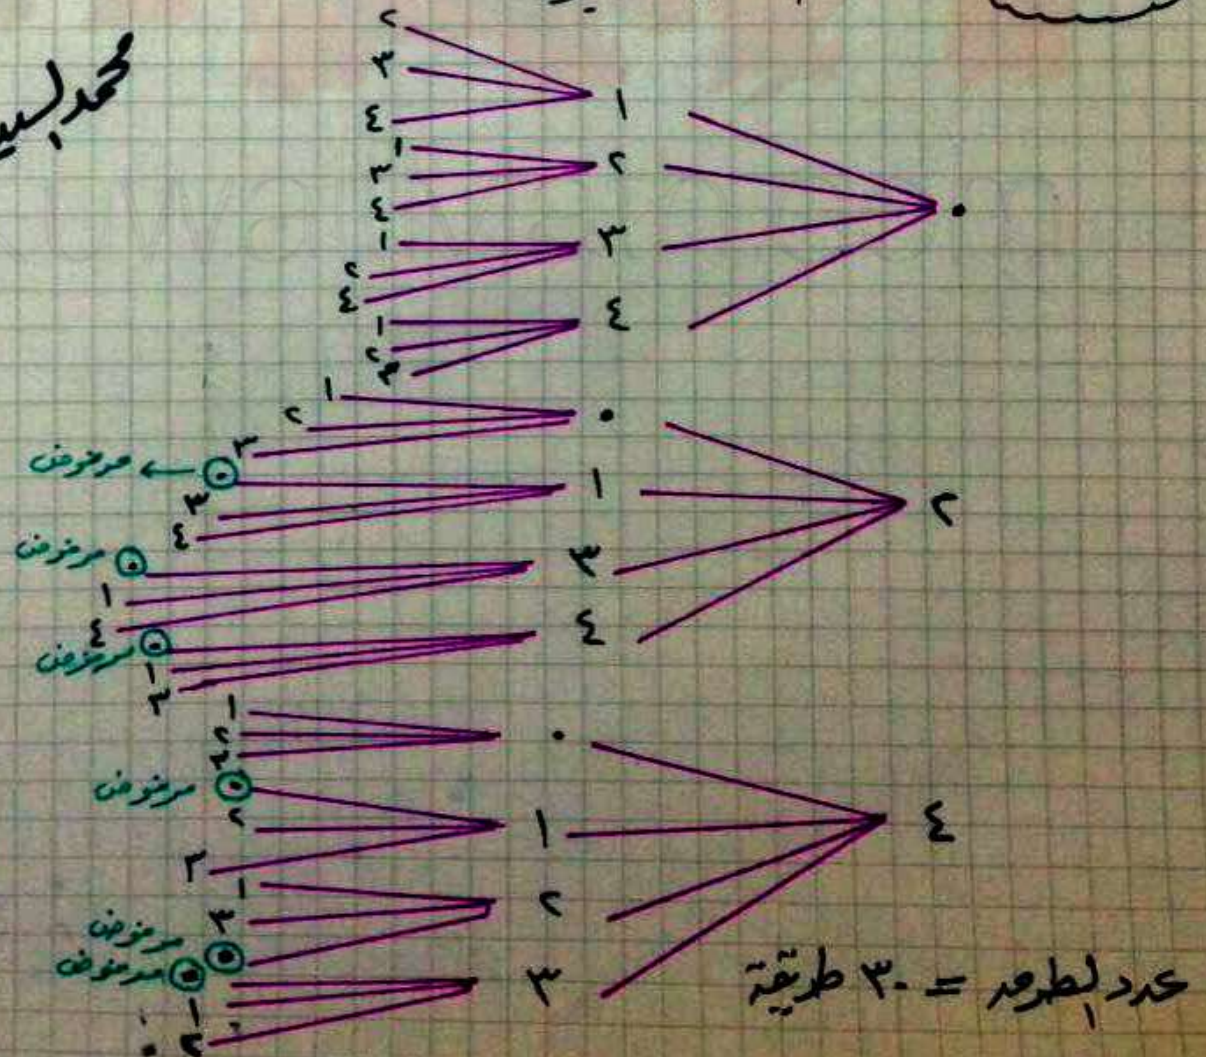 محمد السيد
٠
١
٢
٣
٤
٢
٣
٤
١
٣
٤
١
٢
٤
١
٢
٣
٢
٠
١
٢
٣
١
٠ ← مرفوض
٣
٤
٣
٠ مرفوض
١
٤
٤
٠ مرفوض
١
٣
٤
٠
١
٢
٣
١
٠ مرفوض
٢
٣
٢
١
٣
٠ مرفوض
٣
٠ مرفوض
١
٢
عدد الطرق = ٣٠ طريقة